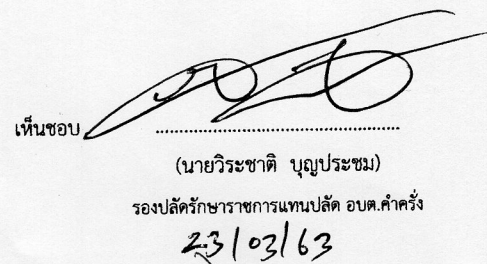 เห็นชอบ ............................................
(นายวิระชาติ บุญประชม)
รองปลัดรักษาราชการแทนปลัด อบต.คำครั่ง
23/03/63